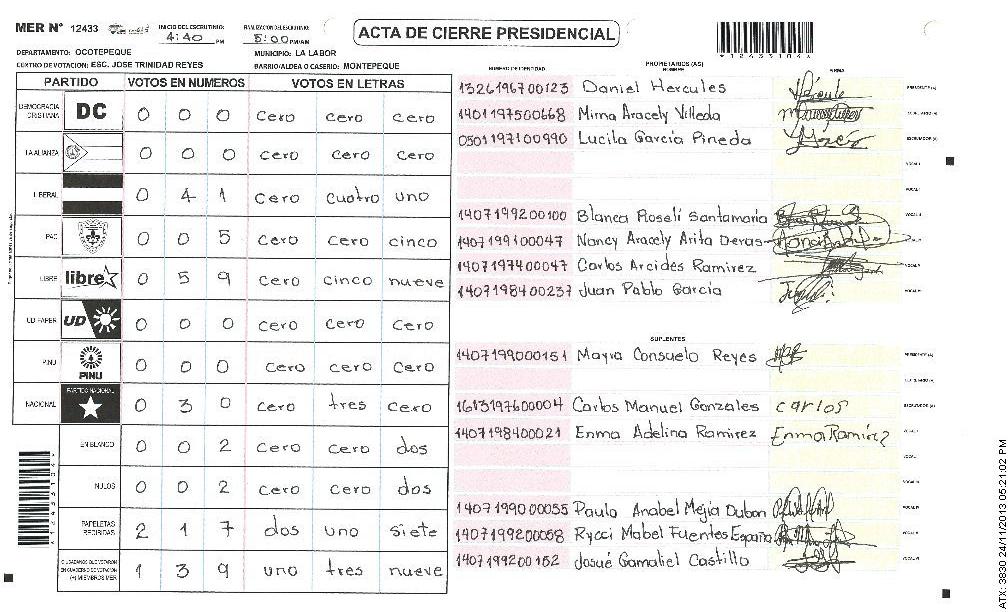 MER Nº 12433 INICIO DEL ESCRUTINIO: 4:40 PM FINALIZACION DEL ESCRUTINIO: 5:00 PM/AM
ACTA DE CIERRE PRESIDENCIAL
*12433104*
DEPARTAMENTO: OCOTEPEQUE MUNICIPIO: LA LABOR
CENTRO DE VOTACION: ESC. JOSE TRINIDAD REYES BARRIO/ALDEA O CASERIO: MONTEPEQUE
PARTIDO VOTOS EN NUMEROS VOTOS EN LETRAS
DEMOCRACIA CRISTIANA DC 0 0 0 cero cero cero
LA ALIANZA 0 0 0 cero cero cero
LIBERAL 0 4 1 cero cuatro uno
PAC 0 0 5 cero cero cinco
LIBRE libre 0 5 9 cero cinco nueve
UD FAPER UD 0 0 0 cero cero cero
PINU PINU 0 0 0 cero cero cero
NACIONAL PARTIDO NACIONAL 0 3 0 cero tres cero
EN BLANCO 0 0 2 cero cero dos
NULOS 0 0 2 cero cero dos
PAPELETAS RECIBIDAS 2 1 7 dos uno siete
CIUDADANOS QUE VOTARON EN CUADERNO DE VOTACION (+) MIEMBROS MER 1 3 9 uno tres nueve
NUMERO DE IDENTIDAD PROPIETARIOS (AS) NOMBRE FIRMA
1326196700123 Daniel Hercules PRESIDENTE (A)
1401197500668 Mirna Aracely Villeda SECRETARIO (A)
0501197100990 Lucila García Pineda ESCRUTADOR (A)
VOCAL I
VOCAL II
1407199200100 Blanca Roselí Santamaria VOCAL III
1407199100047 Nancy Aracely Arita Deras VOCAL IV
1407197400047 Carlos Arcides Ramirez VOCAL V
1407198400237 Juan Pablo García VOCAL VI
SUPLENTES
1407199000151 Mayra Consuelo Reyes PRESIDENTE (A)
SECRETARIO (A)
1613197600004 Carlos Manuel Gonzales carlos ESCRUTADOR (A)
1407198400021 Enma Adelina Ramirez Enma Ramírez VOCAL I
VOCAL II
VOCAL III
1407199000055 Paulo Anabel Mejia Dubon VOCAL IV
1407199200058 Rycci Mabel Fuentes España VOCAL V
1407199200152 Josué Gamaliel Castillo VOCAL VI
*12433104*
ATX: 3930 24/11/2013 05:21:02 PM